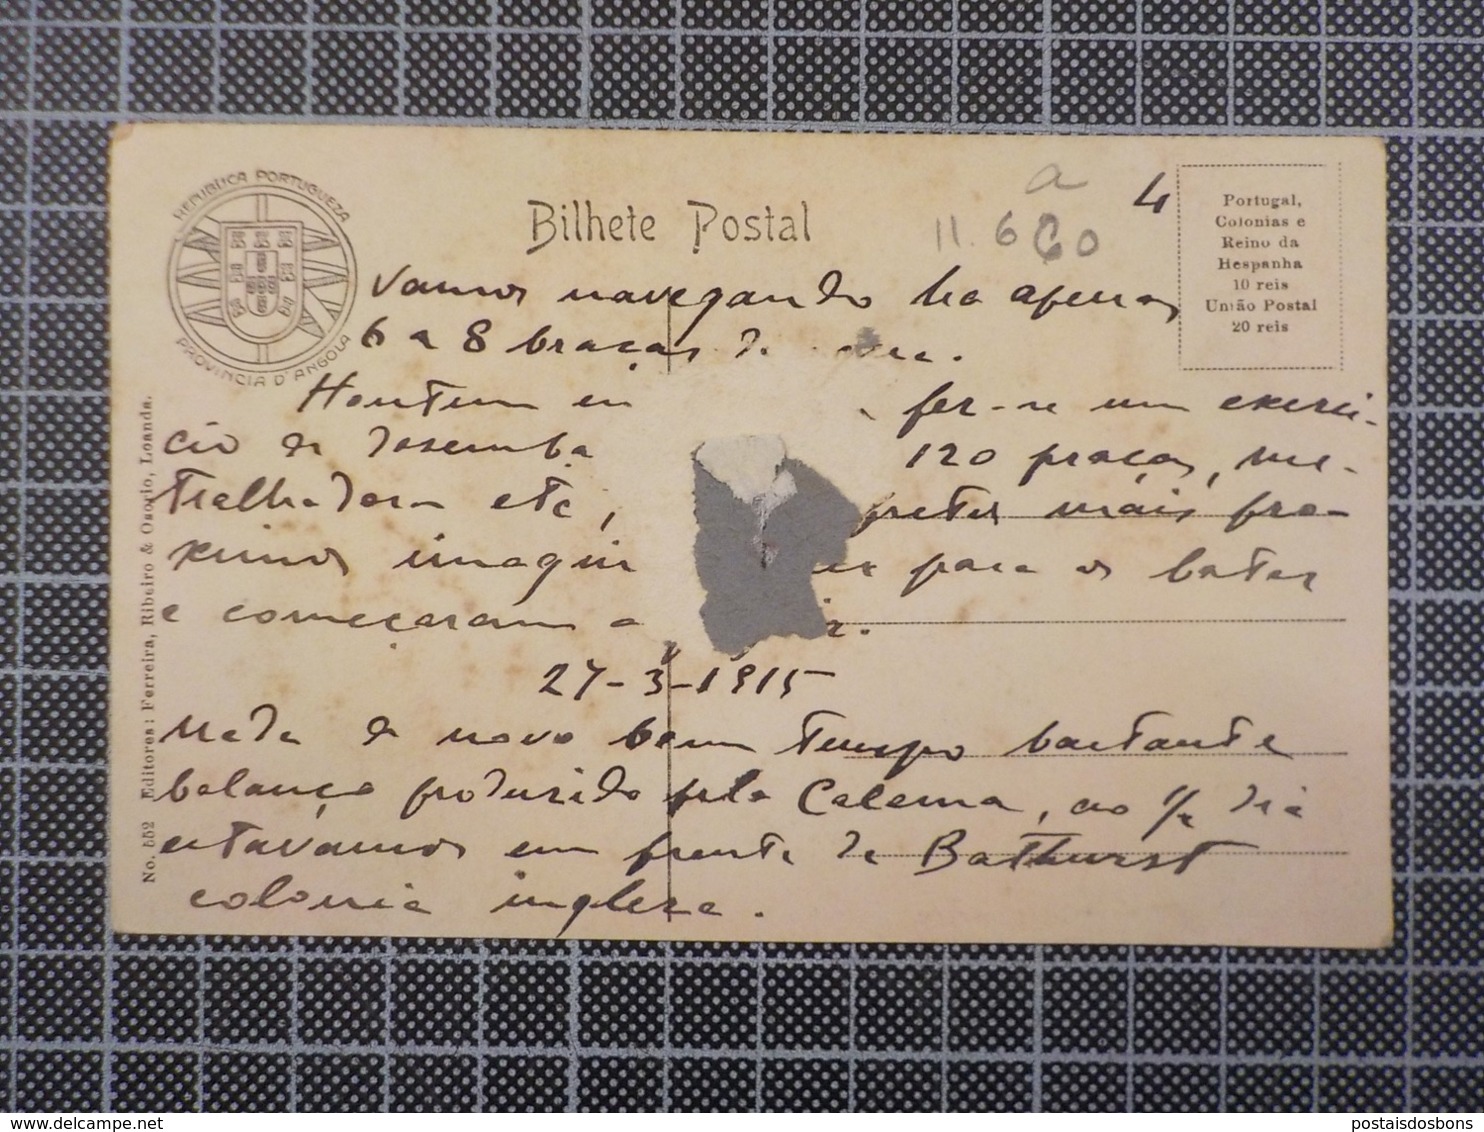 REPUBLICA PORTUGUEZA
PROVINCIA D'ANGOLA
Bilhete Postal
a
11.600
4
Portugal,
Colonias e
Reino da
Hespanha
10 reis
União Postal
20 reis
Vamos navegando ha apenas
6 a 8 braças de
Hontem fez-se um exerci-
cio de desemba 120 praças, me-
tralhadoras etc, pretos mais pro-
ximos para os bater
e começaram a
27-3-1915
Nada de novo bom tempo bastante
balanço produzido pela Calema, ao dia
estavamos em frente de Bathurst
colonia ingleza.
No. 552 Editores: Ferreira, Ribeiro & Osorio, Loanda.
postaisdosbons